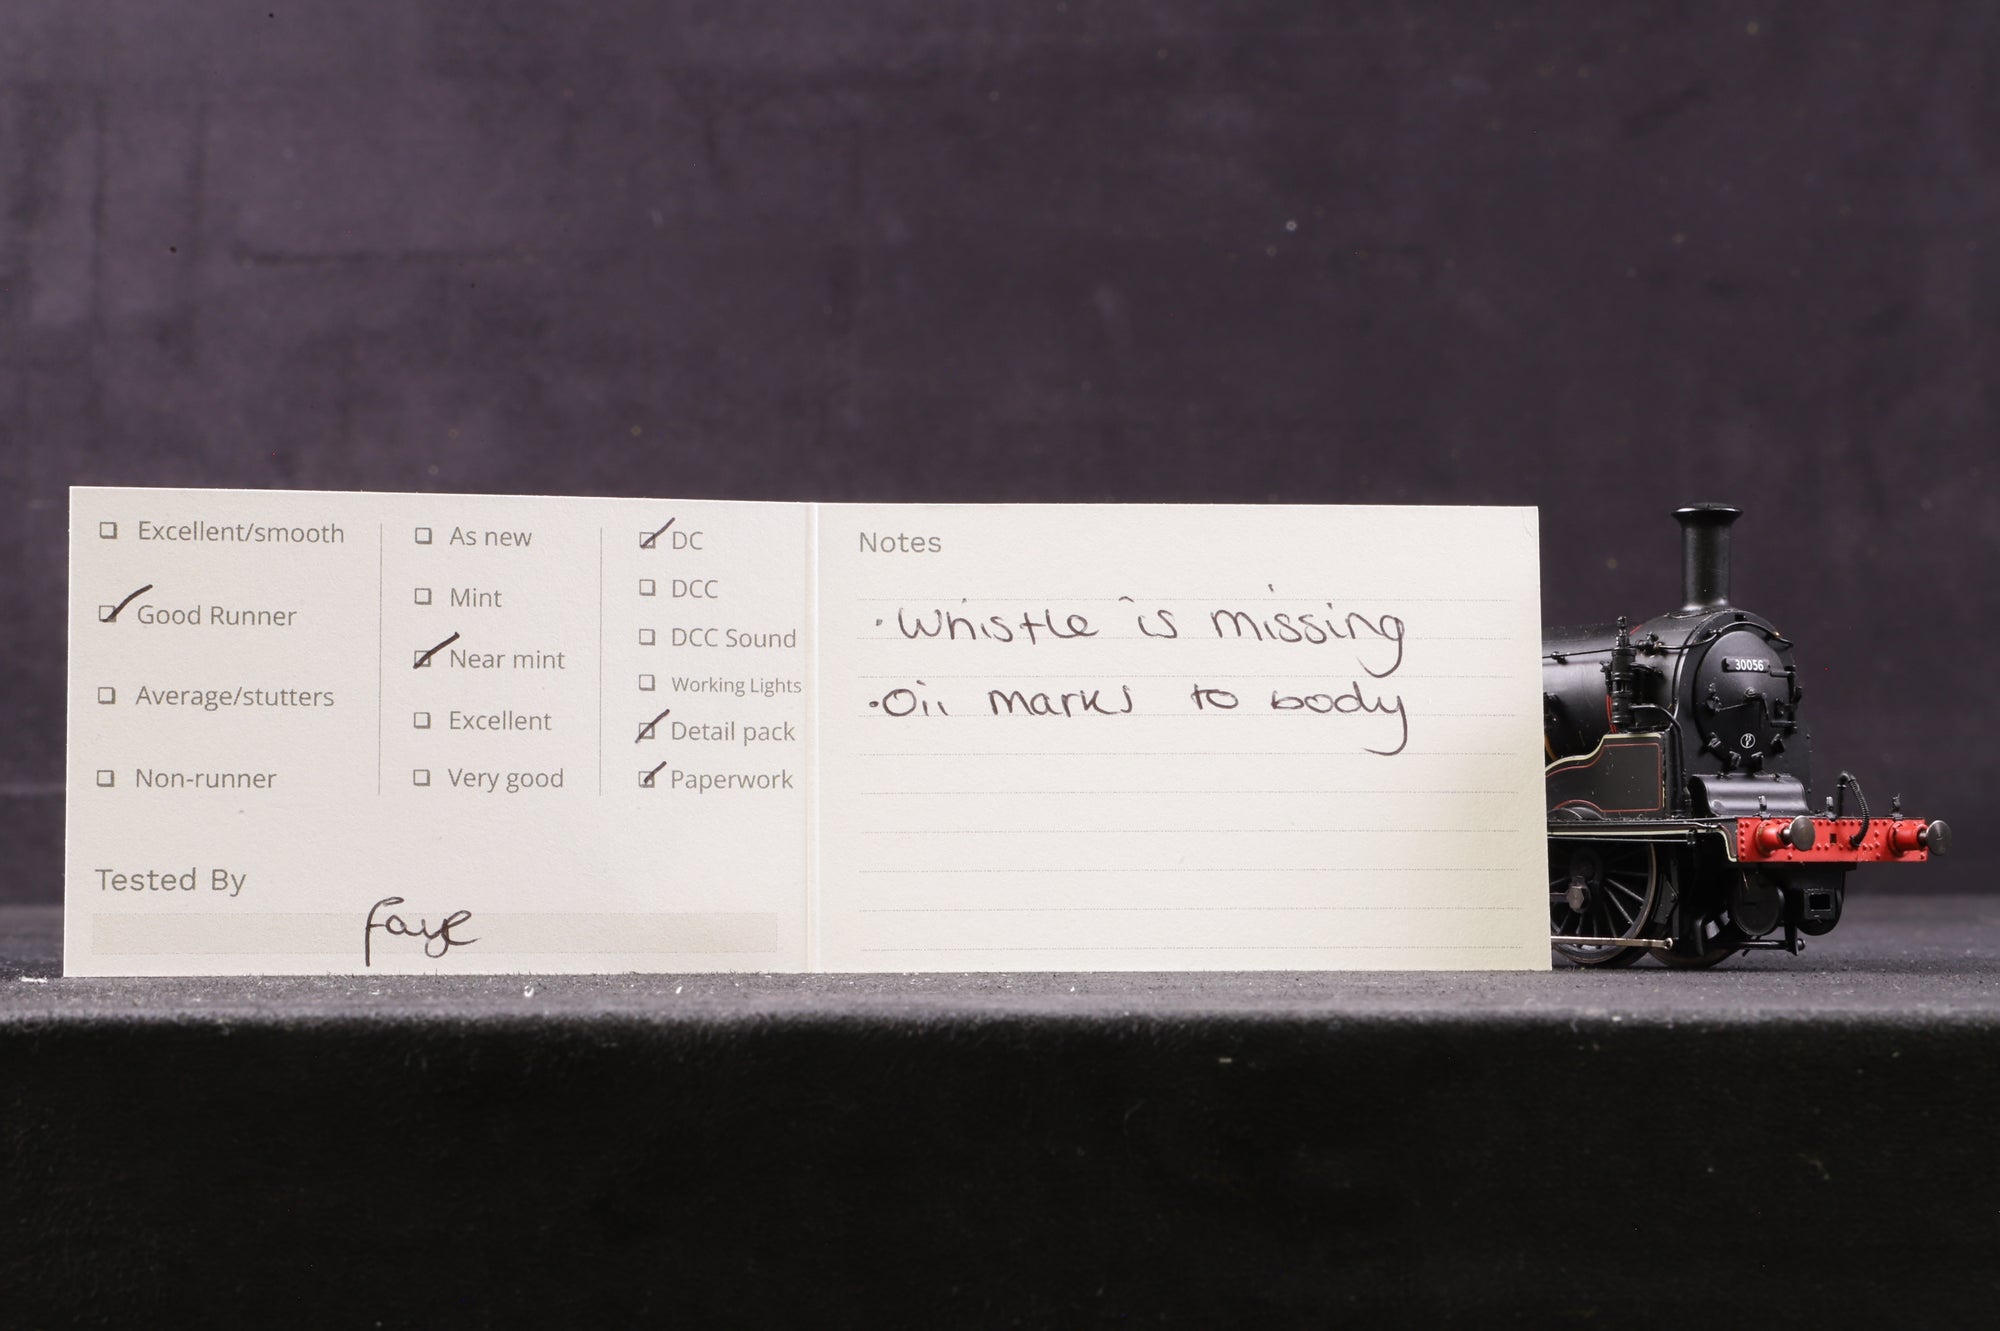 Excellent/smooth
Good Runner
Average/stutters
Non-runner
As new
Mint
Near mint
Excellent
Very good
DC
DCC
DCC Sound
Working Lights
Detail pack
Paperwork
Tested By
Faye
Notes
• Whistle is missing
• Oil marks to body
30056